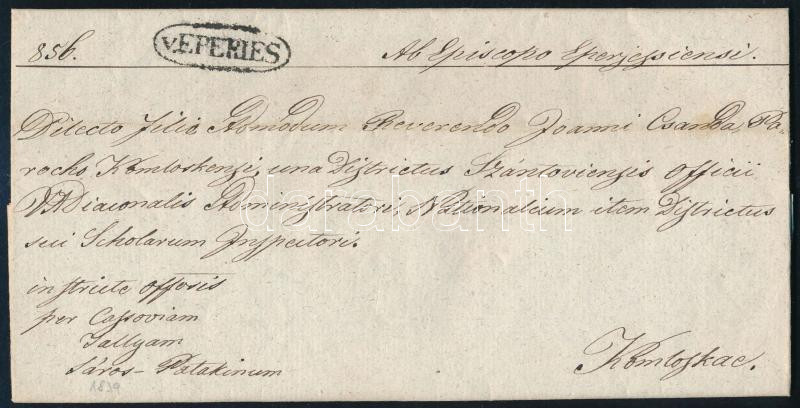 856. v. EPERIES Ab Episcopo Eperjessiensi.
Dilecto Filio Admodum Reverendo Joanni Csanda, Pa-
rocho Komloskensi, una Districtus Szántoviensis officii
VADiaconalis Administratori, Nationalium item Districtus
sui Scholarum Inspectori.
darabanth
in stricte officiosis
per Cassoviam
Tallyam
Sáros-Patakinum
Komloskae.
1839